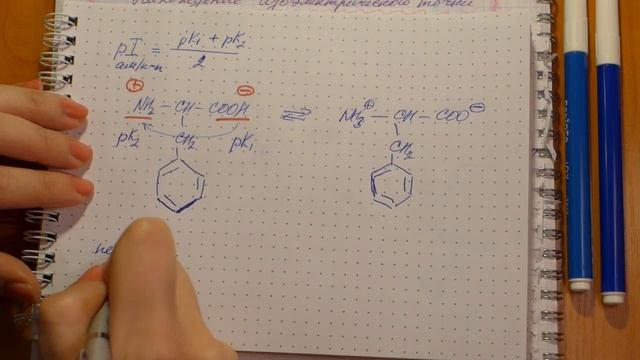 Нахождение изоэлектрической точки
pI = pK₁ + pK₂ / 2
ам/к-т
⊕ ⊖
NH₂ – CH – COOH ⇌ NH₃⊕ – CH – COO⊖
pK₂ CH₂ pK₁ CH₂